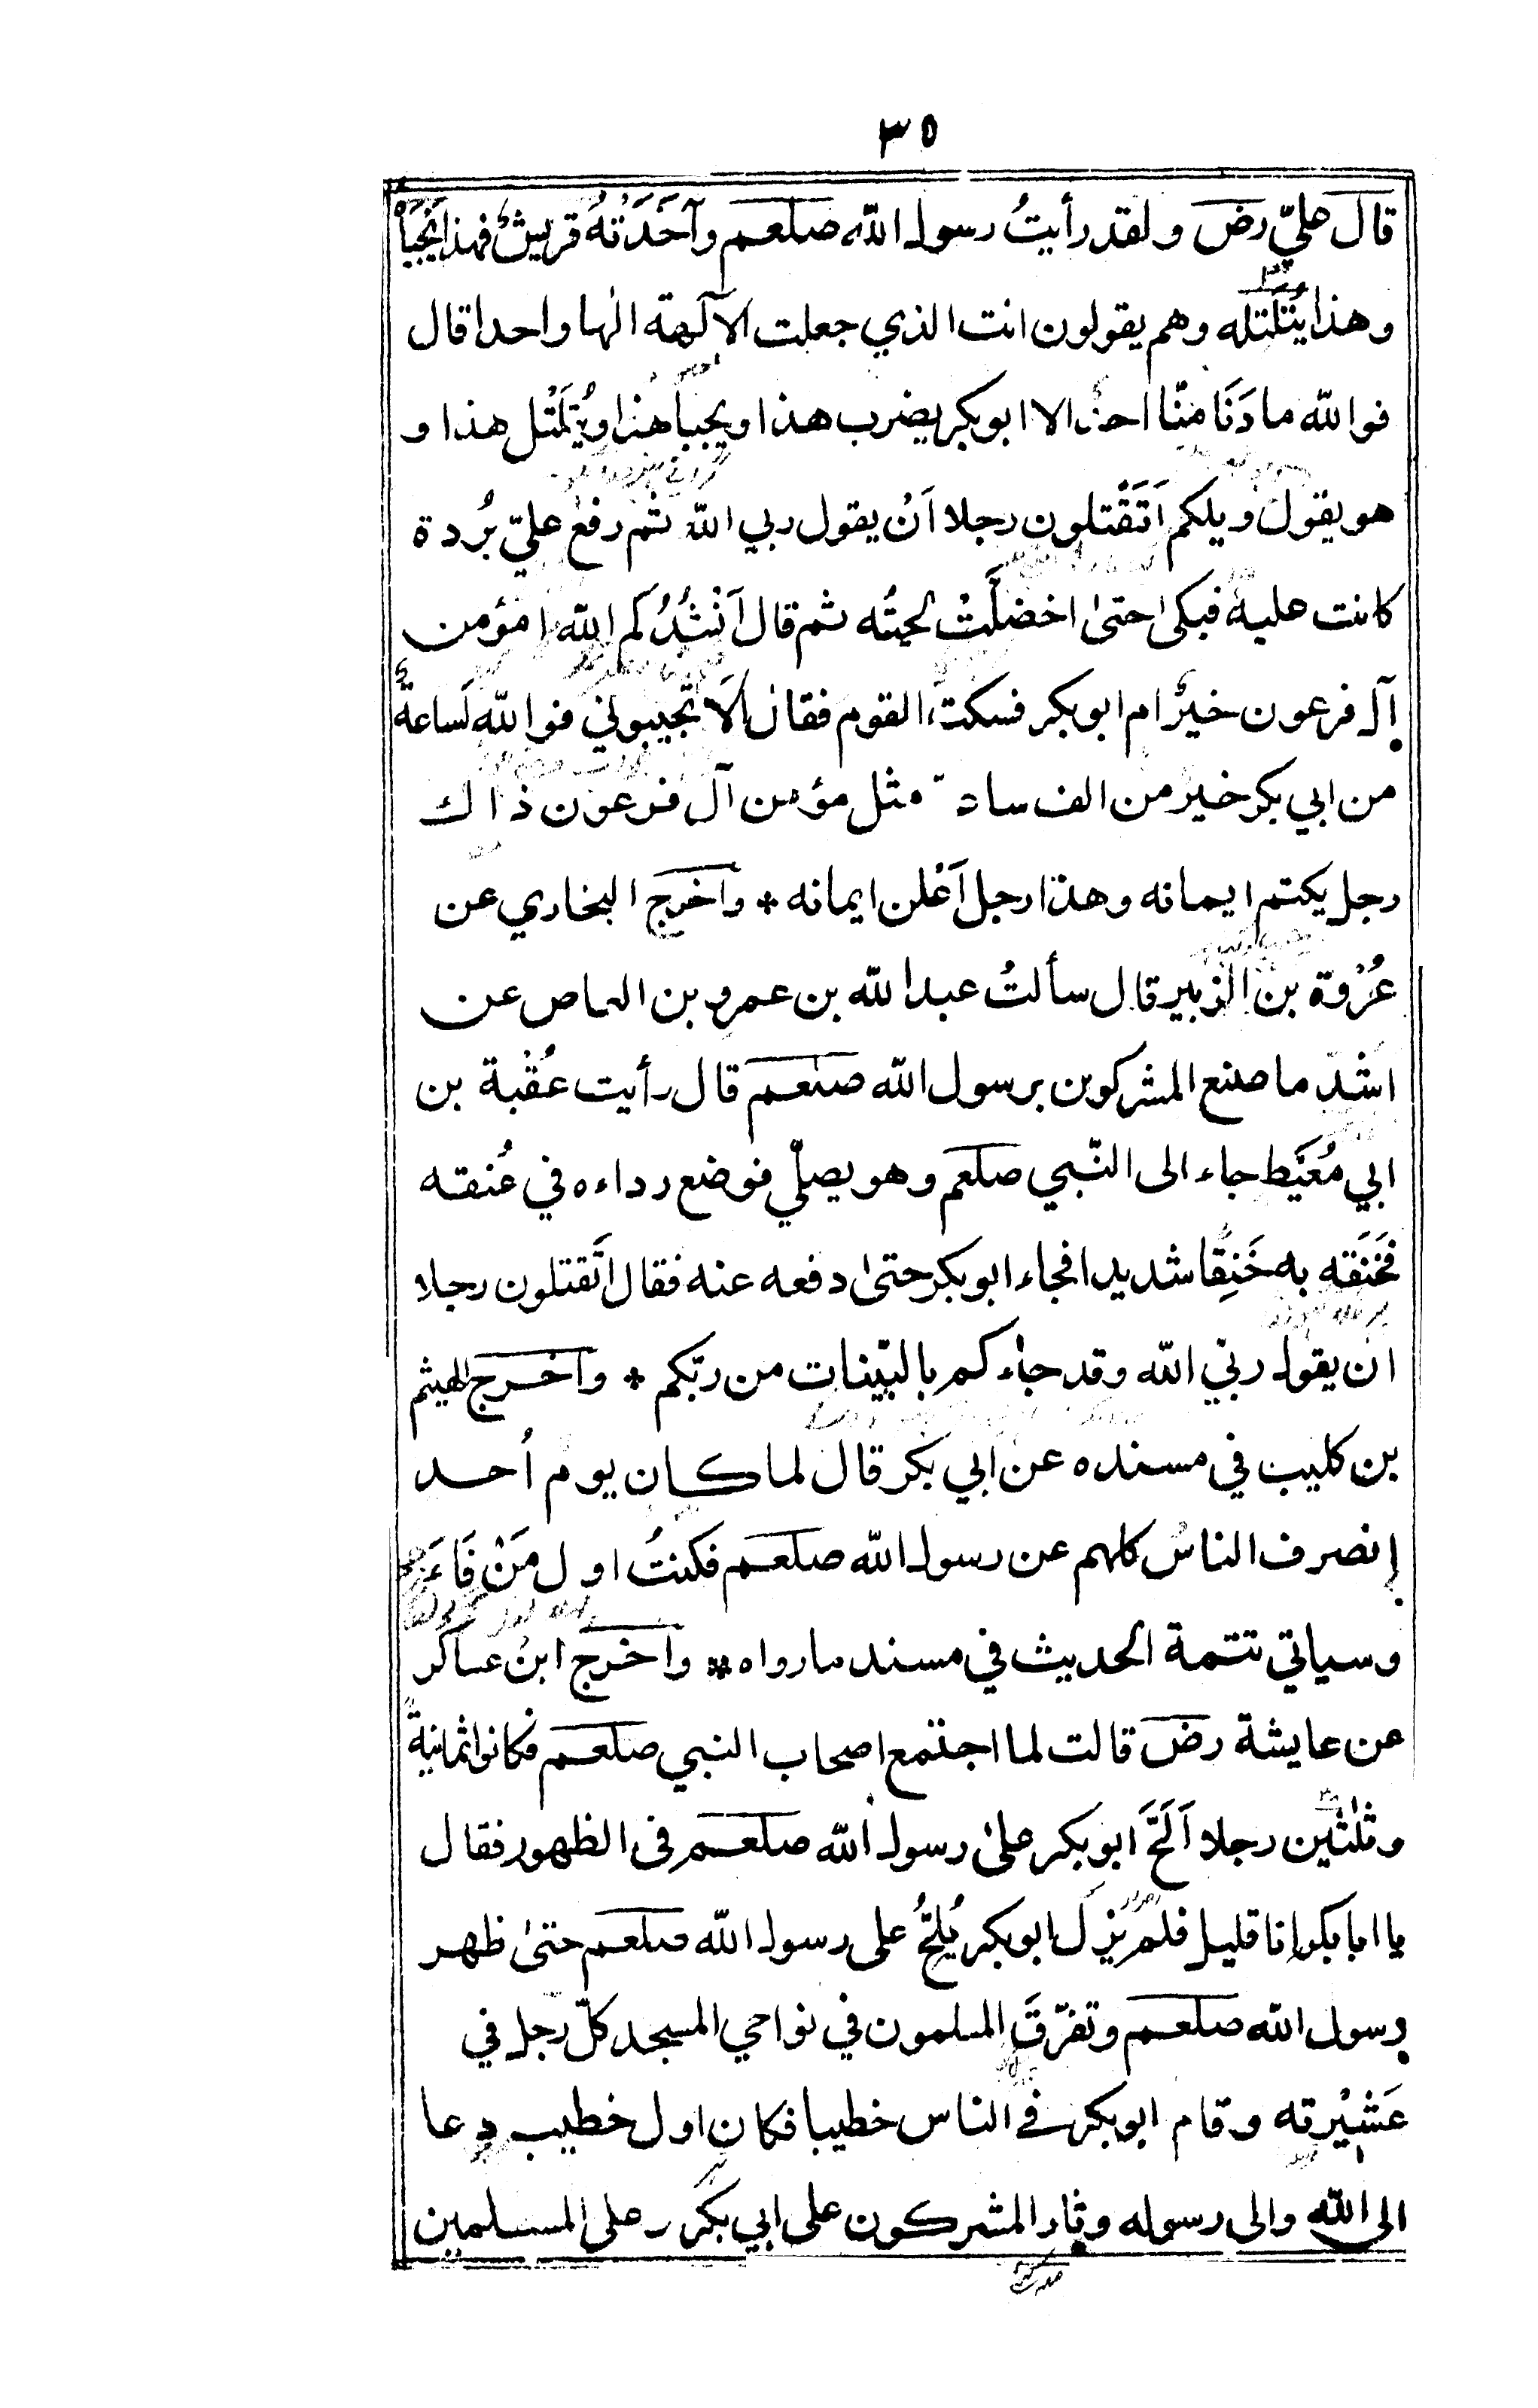 ٣٥
قال عليّ رض ولقد رأيتُ رسول اللّه صلعم وآخَذَتْهُ قريشٌ فهذا يَجْبَأُه
وهذا يُتَلْتله وهم يقولون انت الذي جعلت الآلهة الٰها واحدا قال
فواللّه ما دَنَا منّا احدٌ الا ابوبكر يضرب هذا ويجبأ هذا ويُتَلْتل هذا و
هو يقول ويلكم اَتَقْتلون رجلا اَنْ يقول ربي اللّٰه ثم رفع عليّ بُردة
كانت عليه فبكىٰ حتىٰ اخضلَّتْ لحيتُه ثم قال اَنْشُدُكم اللّٰه امؤمن
آل فرعون خيرٌ ام ابوبكر فسكت القوم فقال اَلَا تجيبوني فواللّه لَساعةٌ
من ابي بكر خير من الف سا مثل مؤمن آل فرعون ذاك
رجل يكتم ايمانه وهذا رجل اَعْلن ايمانه * واخرج البخاري عن
عُرْوة بن الزبير قال سألتُ عبداللّه بن عمرو بن العاص عن
اشدّ ما صنع المشركون برسول اللّه صلعم قال رأيت عُقْبة بن
ابي مُعَيْط جاء الى النّبي صلعم وهو يصلّي فوضع رداءه في عُنقه
فخَنَقَه به خَنِقًا شديدا فجاء ابوبكر حتىٰ دفعه عنه فقال اَتَقتلون رجلا
ان يقول ربّي اللّه وقد جاءكم بالبيّنات من ربّكم * واخرج الهيثم
بن كليب في مسنده عن ابي بكر قال لما كان يوم اُحد
إنصرف الناسُ كلهم عن رسول اللّه صلعم فكنتُ اول مَنْ فَاءَ
وسياتي تتمة الحديث في مسند ما رواه * واخرج ابنُ عساكر
عن عايشة رض قالت لما اجتمع اصحاب النبي صلعم فكانوا ثمانيةً
وثلٰثين رجلا اَلَحَّ ابوبكر علىٰ رسول اللّه صلعم فى الظهور فقال
يا ابابكر إنا قليل فلم يزل ابوبكر يُلِحُّ على رسول اللّه صلعم حتىٰ ظهر
رسول اللّه صلعم وتفرّقَ المسلمون في نواحي المسجد كلّ رجل في
عَشيْرته وقام ابوبكر في الناس خطيبا فكان اول خطيب دعا
الى اللّه والى رسوله وثار المشركون على ابي بكر وعلى المسلمين